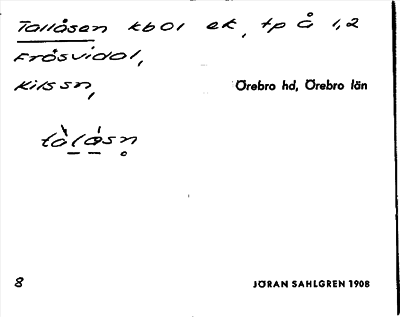 Tallåsen kb01 ek, tp å 1,2
Frösvidal,
Kils sn, Örebro hd, Örebro län
tàlásn
8 JÖRAN SAHLGREN 1908